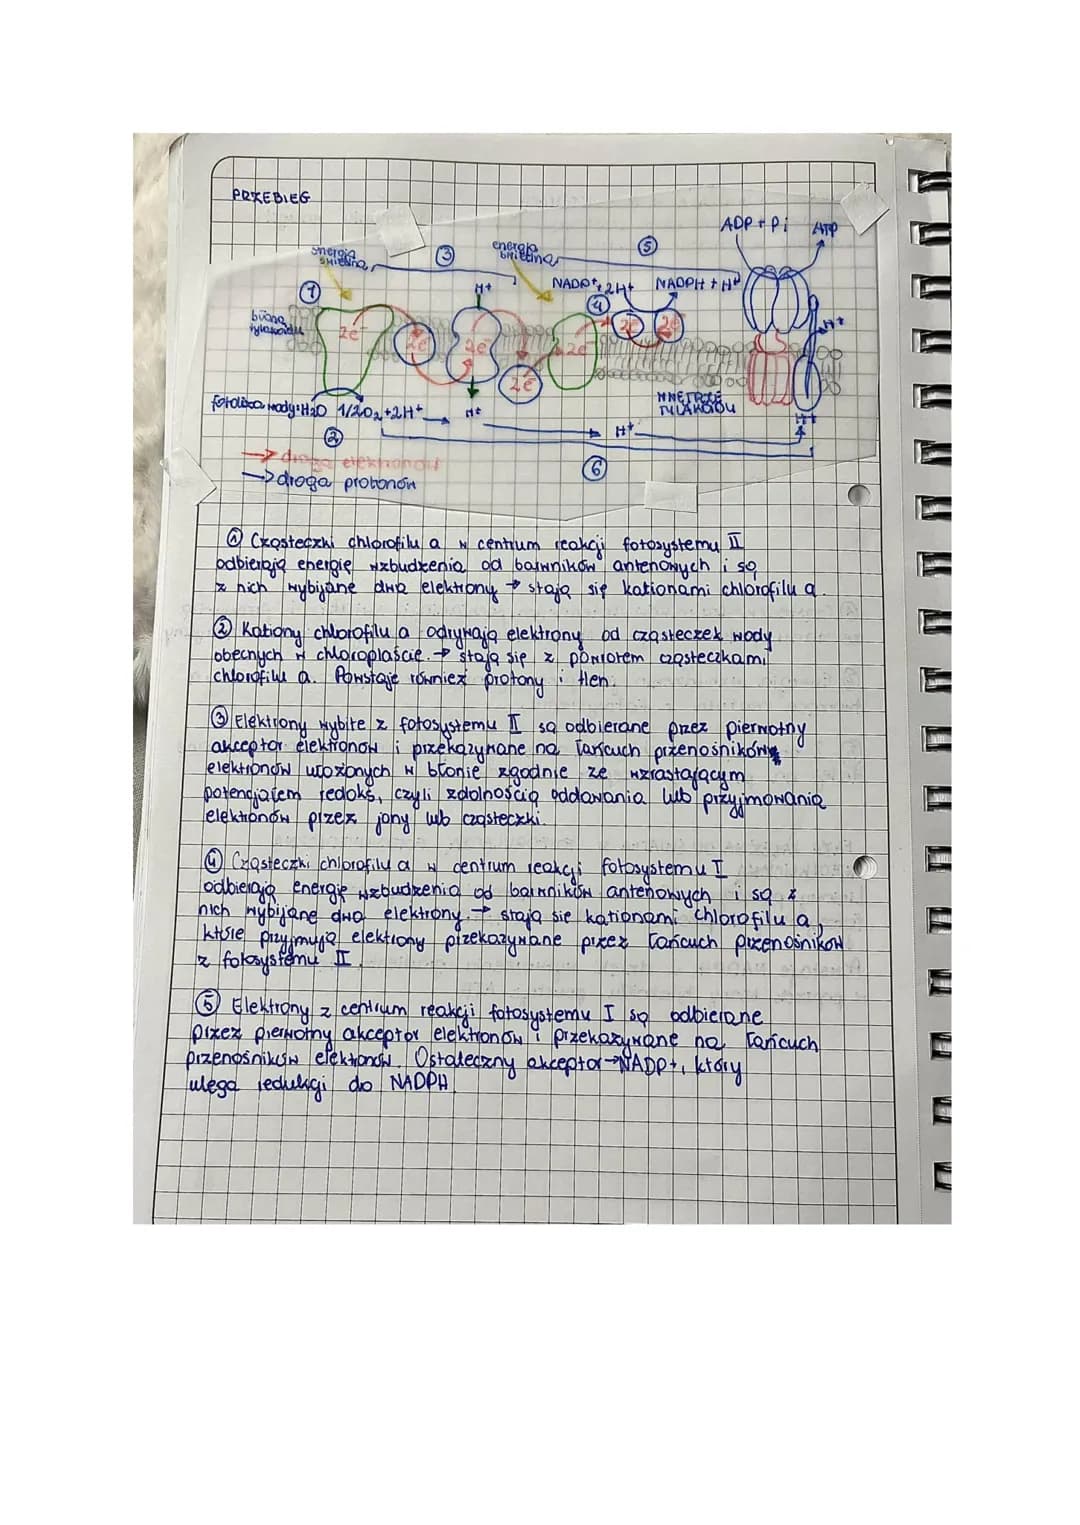 PRZEBIEG
ADP + Pi ATP
energia świetlna
③
energia świetlna
⑤
H+
NADP+, 2H+ NADPH + H+
①
④
błona tylakoidu
2e⁻ 2e⁻ 2e⁻ 2e⁻ 2e⁻ 2e⁻ 2e⁻
H+
WNĘTRZE TYLAKOIDU
fotoliza wody: H₂O 1/2O₂ + 2H+ H+ H+ H+
②
⑥
→ droga elektronów
→ droga protonów
① Cząsteczki chlorofilu a w centrum reakcji fotosystemu II
odbierają energię wzbudzenia od barwników antenowych i są
z nich wybijane dwa elektrony → stają się kationami chlorofilu a.
② Kationy chlorofilu a odrywają elektrony od cząsteczek wody
obecnych w chloroplaście. → stają się z powrotem cząsteczkami
chlorofilu a. Powstaje również protony i tlen.
③ Elektrony wybite z fotosystemu II są odbierane przez pierwotny
akceptor elektronów i przekazywane na łańcuch przenośników
elektronów ułożonych w błonie zgodnie ze wzrastającym
potencjałem redoks, czyli zdolnością oddawania lub przyjmowania
elektronów przez jony lub cząsteczki.
④ Cząsteczki chlorofilu a w centrum reakcji fotosystemu I
odbierają energię wzbudzenia od barwników antenowych i są z
nich wybijane dwa elektrony → stają się kationami chlorofilu a,
które przyjmują elektrony przekazywane przez łańcuch przenośników
z fotosystemu II.
⑤ Elektrony z centrum reakcji fotosystemu I są odbierane
przez pierwotny akceptor elektronów i przekazywane na łańcuch
przenośników elektronów. Ostateczny akceptor → NADP+, który
ulega redukcji do NADPH.